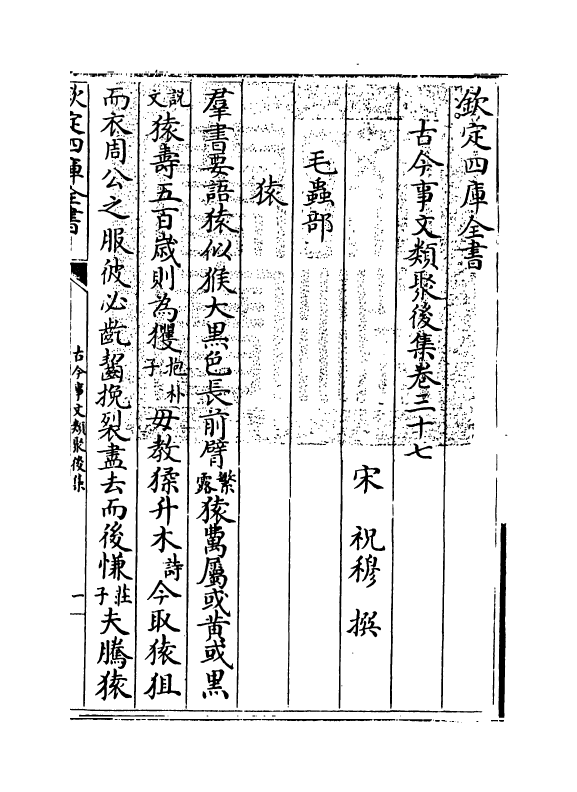 欽定四庫全書
古今事文類聚後集卷三十七
宋　祝穆　撰
毛蟲部
猿
羣書要語猿似猴大黑色長前臂繁露猿禺屬或黄或黑
説文猿壽五百歳則為玃抱朴子毋教猱升木詩今取猿狙
而衣周公之服彼必齕齧挽裂盡去而後慊莊子夫騰猿
欽定四庫全書
古今事文類聚後集
一